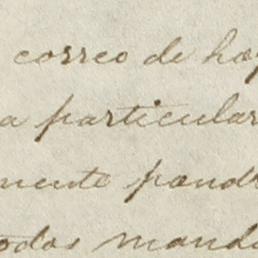 correo de hoy
a particular
mente pondr
odos manda